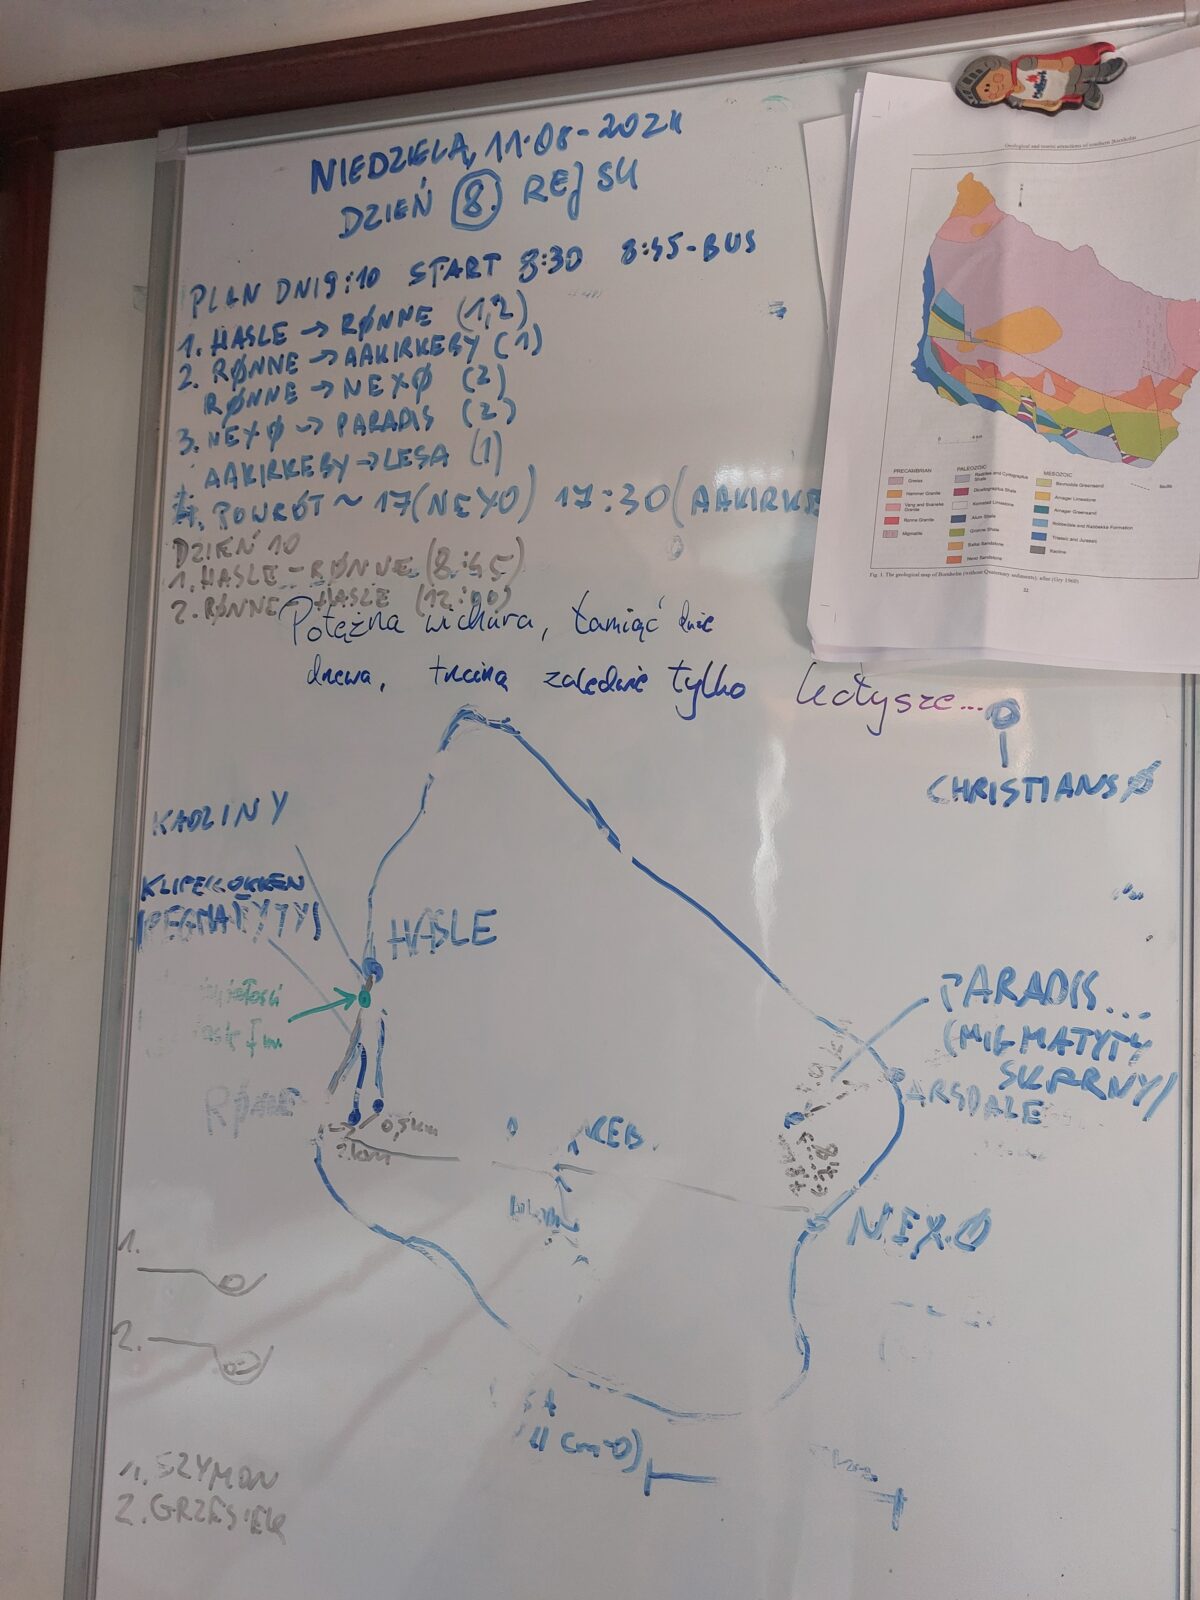 NIEDZIELA, 11-08-2024
DZIEŃ 8. REJSU
PLAN DNI 9:10 START 8:30 8:45-BUS
1. HASLE → RØNNE (1,2)
2. RØNNE → AAKIRKEBY (1)
RØNNE → NEXØ (2)
3. NEXØ → PARADIS (2)
AAKIRKEBY → LESA (1)
4. POWRÓT ~ 17 (NEXO) 17:30 (AAKIRKE
DZIEŃ 10
1. HASLE - RØNNE (8:45)
2. RØNNE - HASLE (12:00)
Potężna wichura, łamiąc duże
drzewa, trzciną zaledwie tylko kołysze...
CHRISTIANSØ
KAOLINY
KLIPPELØKKEN
(PEGMATYTY)
HASLE
PARADIS...
(MIGMATYTY
SKARNY)
ARSDALE
RØNNE
0,5km
2km
KEB
NEXØ
1.
2.
1. SZYMON
2. GRZESIEK
Geological and tourist attractions of southern Bornholm
N
0 4 km
PRECAMBRIAN
Gneiss
Hammer Granite
Vang and Svaneke Granite
Rønne Granite
Migmatite
PALEOZOIC
Rastrites and Cyrtograptus Shale
Dicellograptus Shale
Komstad Limestone
Alum Shale
Green Shale
Balka Sandstone
Nexø Sandstone
MESOZOIC
Bavnodde Greensand
Arnager Limestone
Arnager Greensand
Robbedale and Rabekke Formation
Triassic and Jurassic
Kaoline
faults
Fig. 1. The geological map of Bornholm (without Quaternary sediments); after (Gry 1960)